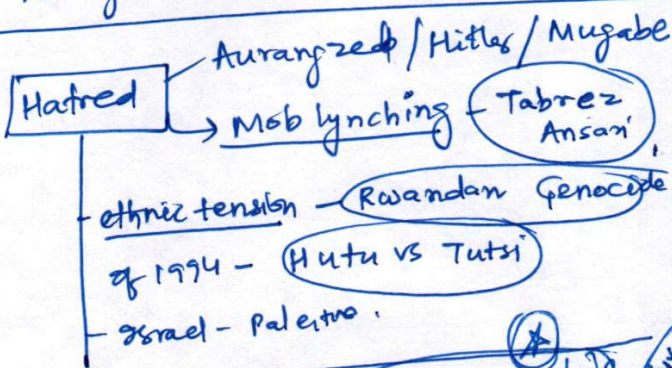 Aurangzeb / Hitler / Mugabe
Hatred
→ Mob lynching - Tabrez
Ansari
- ethnic tension - Rwandan Genocide
of 1994 - Hutu vs Tutsi
- Israel - Palestine.